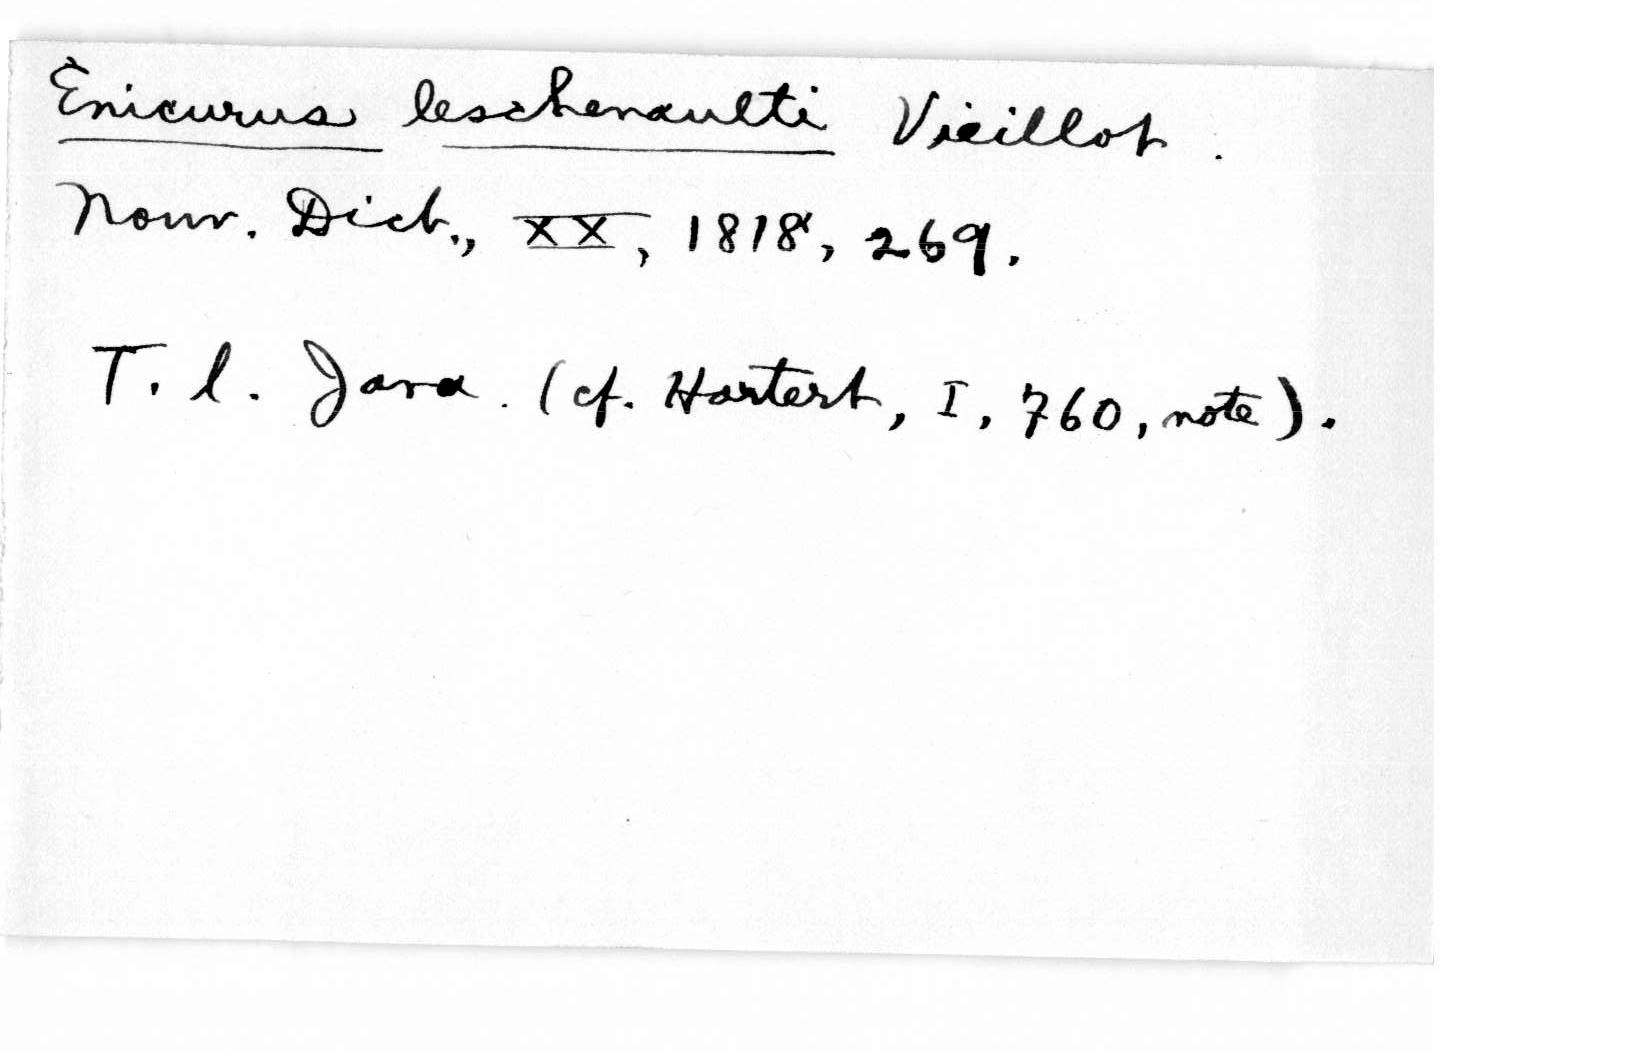 Enicurus leschenaulti Vieillot.
Nouv. Dict., XX, 1818, 269.
T. l. Java. (cf. Hartert, I, 760, note).